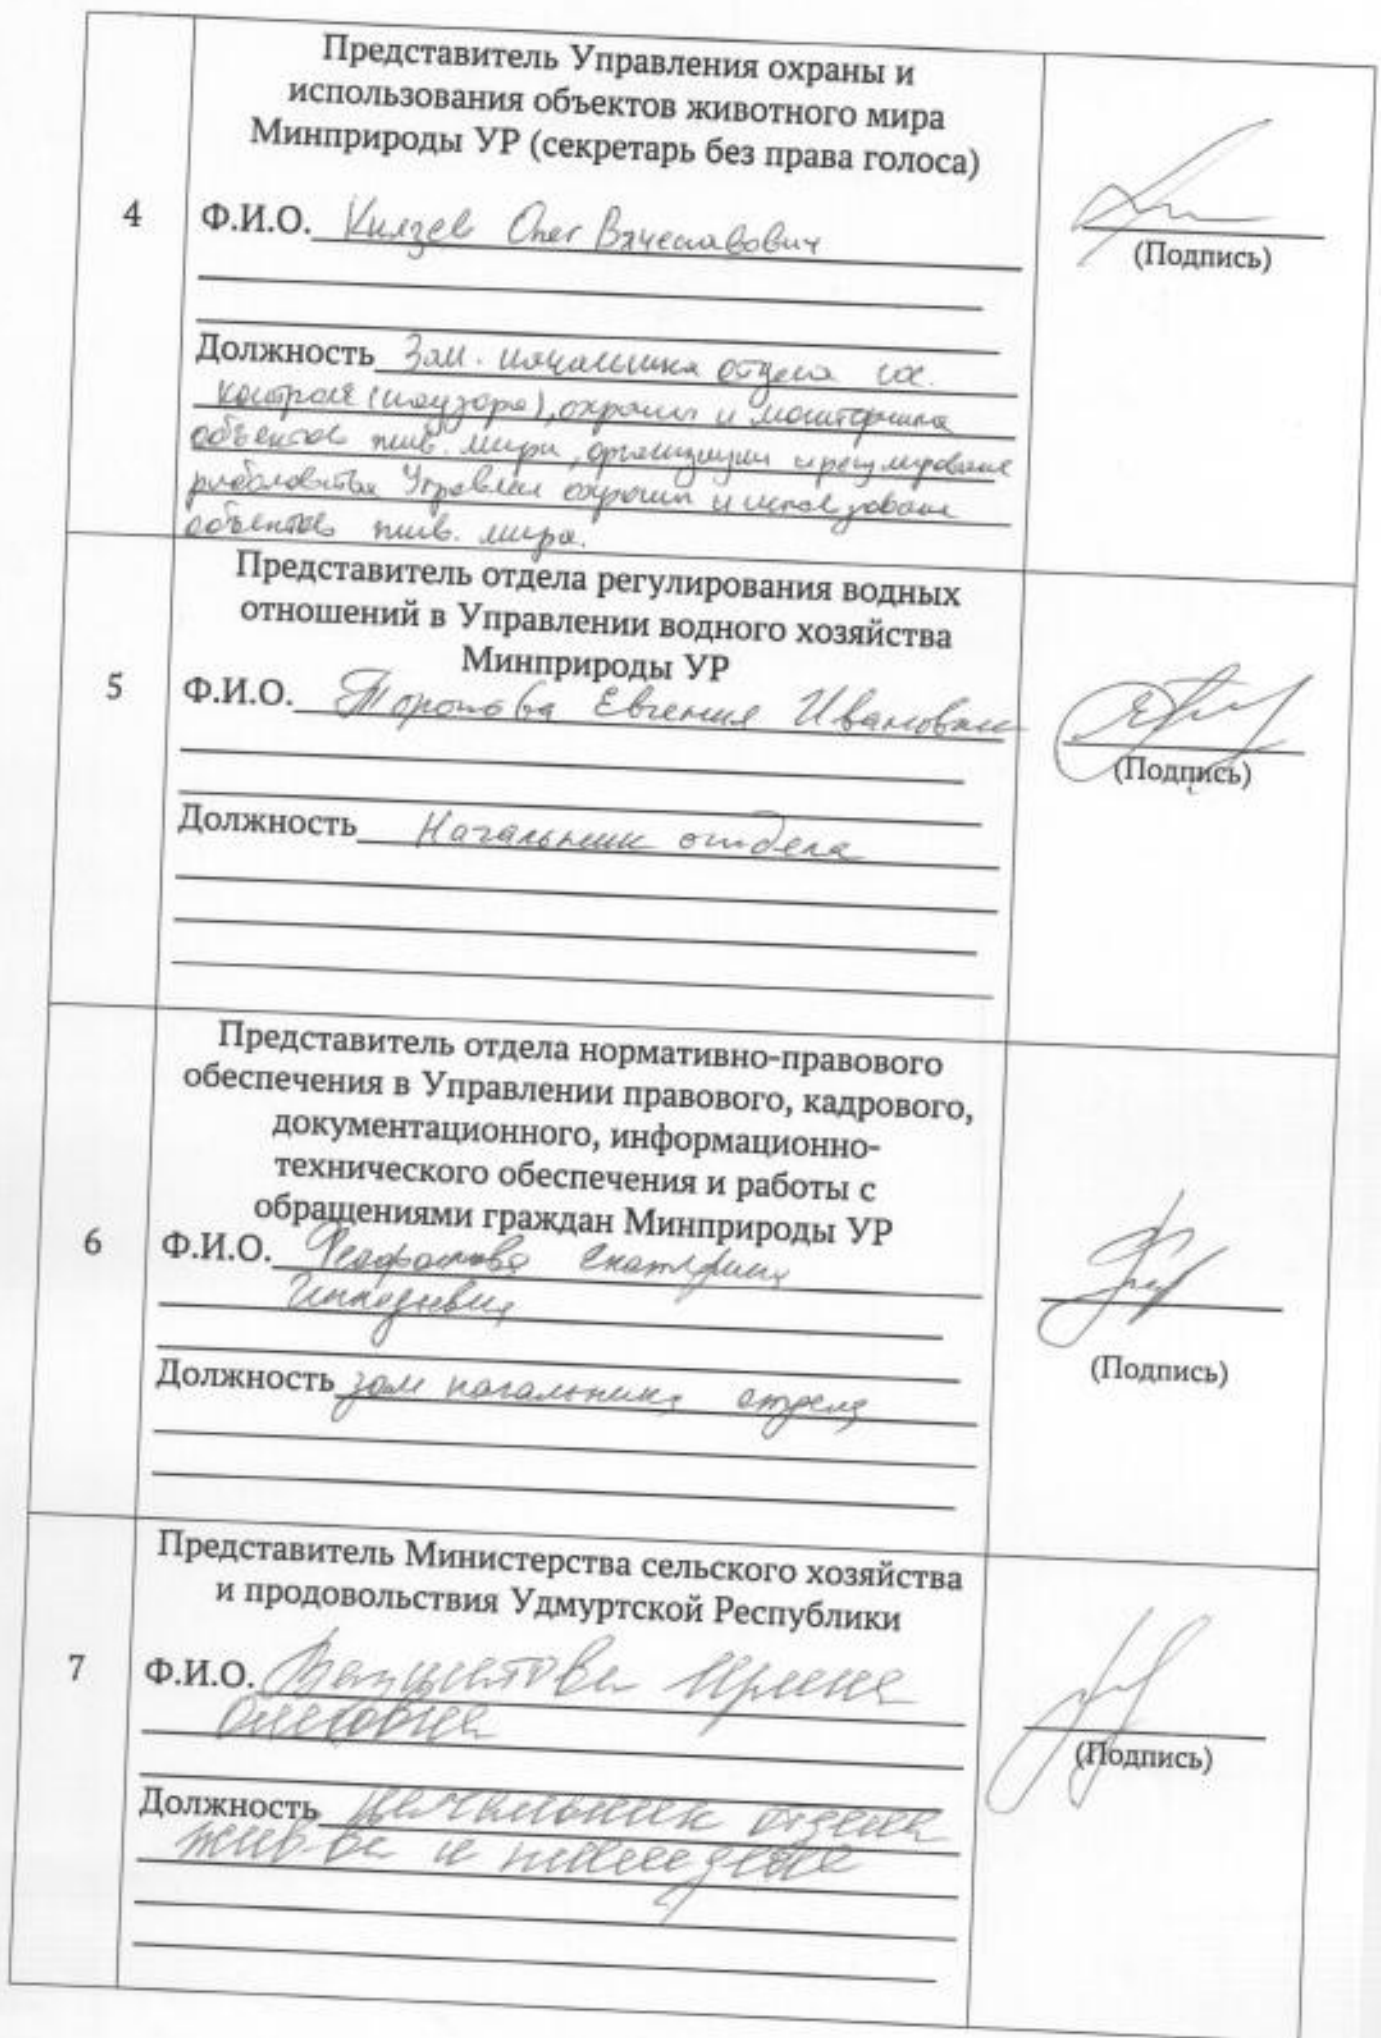 Представитель Управления охраны и
использования объектов животного мира
Минприроды УР (секретарь без права голоса)
4
Ф.И.О. Князев Олег Вячеславович
(Подпись)
Должность Зам. начальника отдела гос.
контроля (надзора), охраны и мониторинга
объектов жив. мира, организации и регулирование
рыболовства Управлен охраны и использования
объектов жив. мира.
Представитель отдела регулирования водных
отношений в Управлении водного хозяйства
Минприроды УР
5
Ф.И.О. Торопова Евгения Ивановна
(Подпись)
Должность Начальник отдела
Представитель отдела нормативно-правового
обеспечения в Управлении правового, кадрового,
документационного, информационно-
технического обеспечения и работы с
обращениями граждан Минприроды УР
6
Ф.И.О. Екатерина
(Подпись)
Должность зам начальника отдела
Представитель Министерства сельского хозяйства
и продовольствия Удмуртской Республики
7
Ф.И.О. Ирина
Олеговна
(Подпись)
Должность начальник отдела
жив-ва и